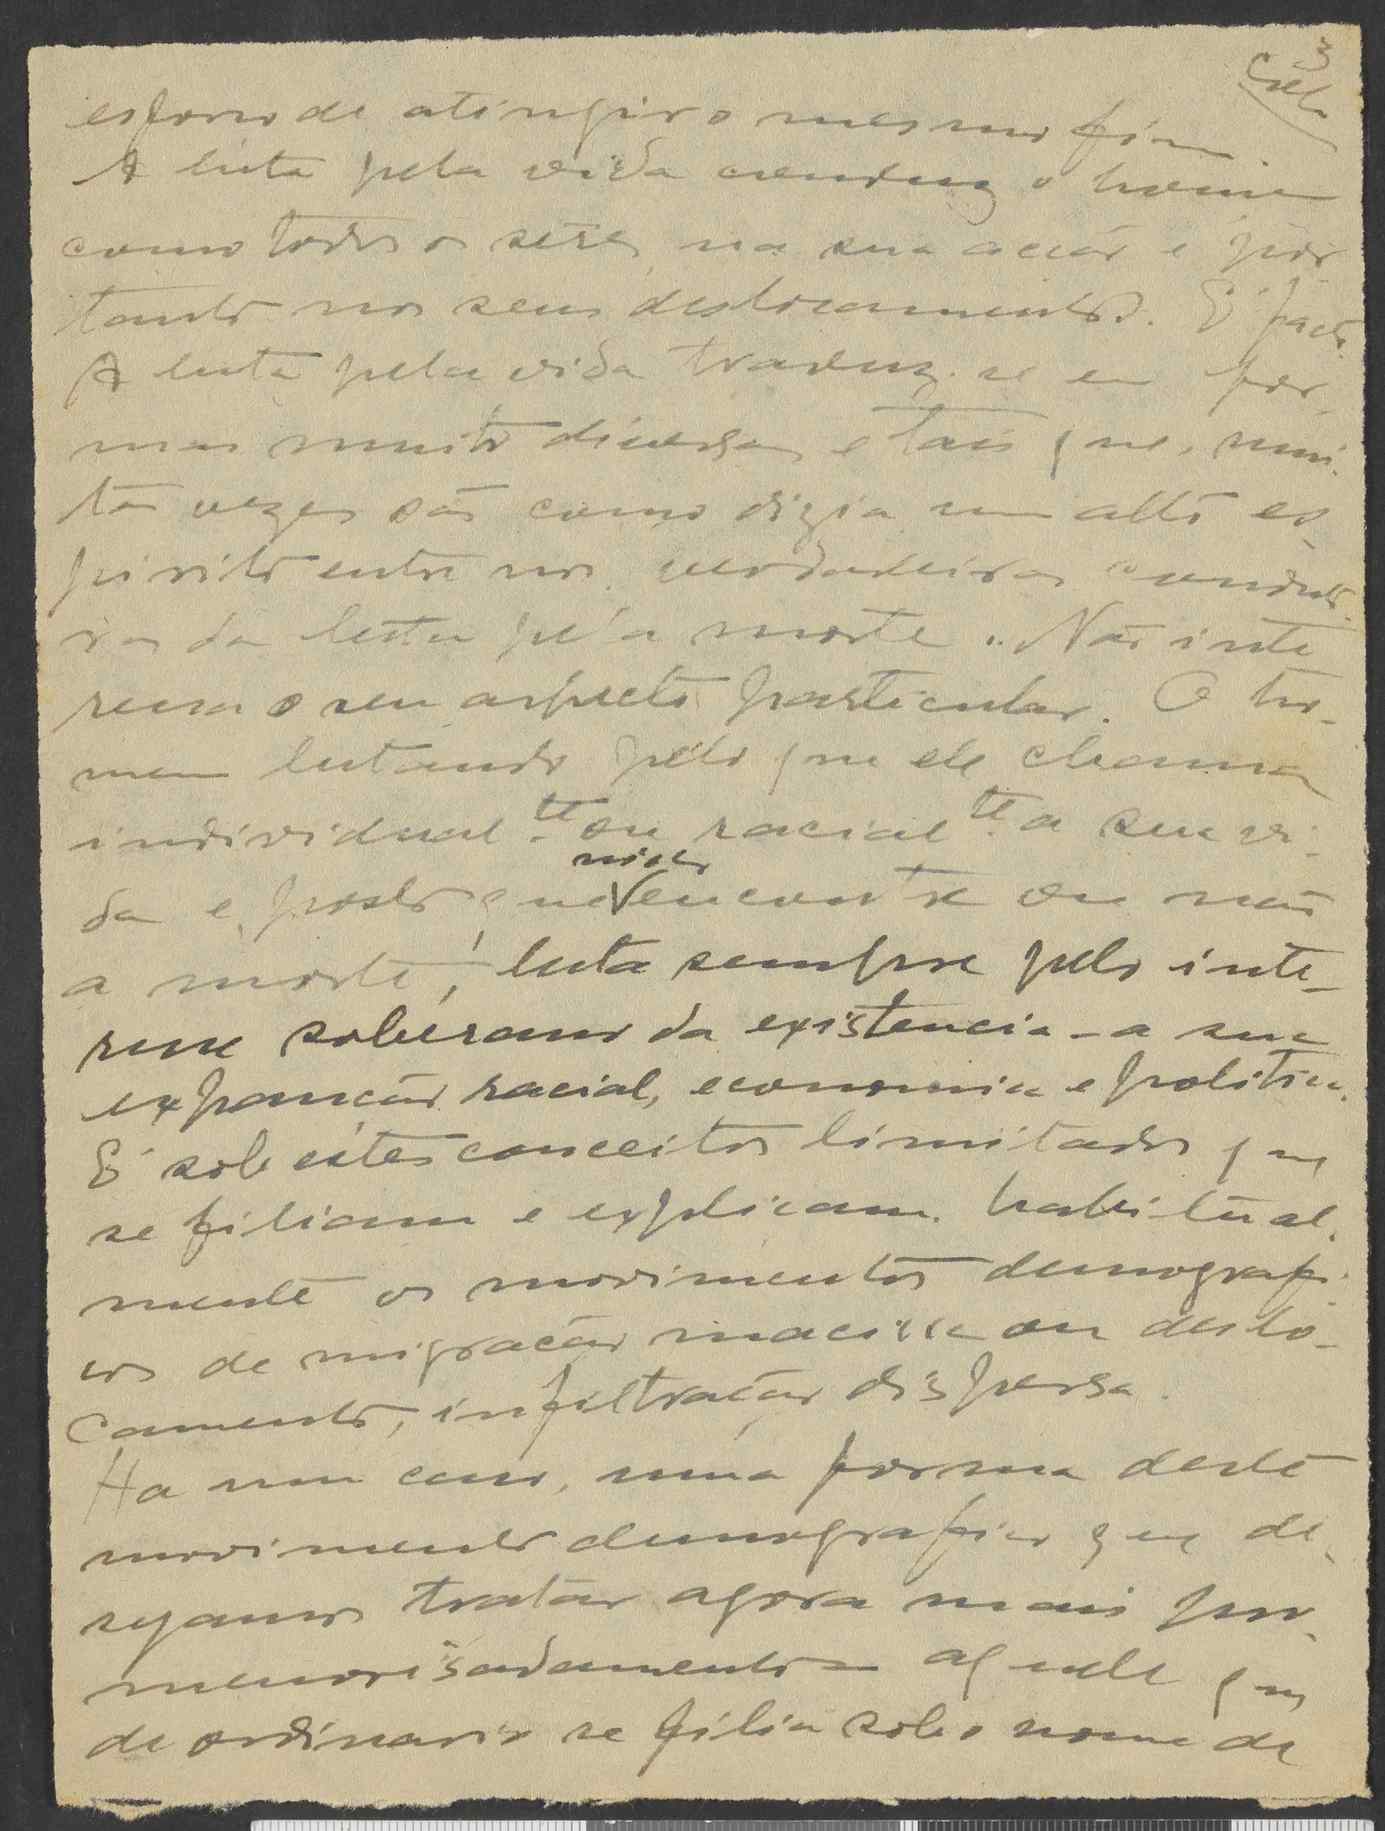 3
esforço de atingir o mesmo fim.
A luta pela vida conduz o homem
como todos os sêres, na sua acção e por
tanto nos seus deslocamentos. É facto.
A luta pela vida traduz-se em for-
mas muito diversas e tais que, mui-
tas vezes são como dizia um alto es-
pirito entre nos, verdadeiras "conduc
ras da lucta pela morte". Não inte
ressa o seu aspecto particular. O ho-
mem lutando pelo que ele chama
individualte. ou racialte. a sua vi-
da e, posto que nisso encontre ou não
a morte, luta sempre pelo inte-
resse soberano da existencia - a sua
expanção racial, economica e politica.
É sob estes conceitos limitados que
se filiam e explicam habitual-
mente os movimentos demografi-
cos de migração macissa ou deslo-
camento, infiltração dispersa.
Ha um caso, uma forma deste
movimento demografico que de-
sejamos tratar agora mais por-
menorisadamente aquele que
de ordinario se filia sob o nome de